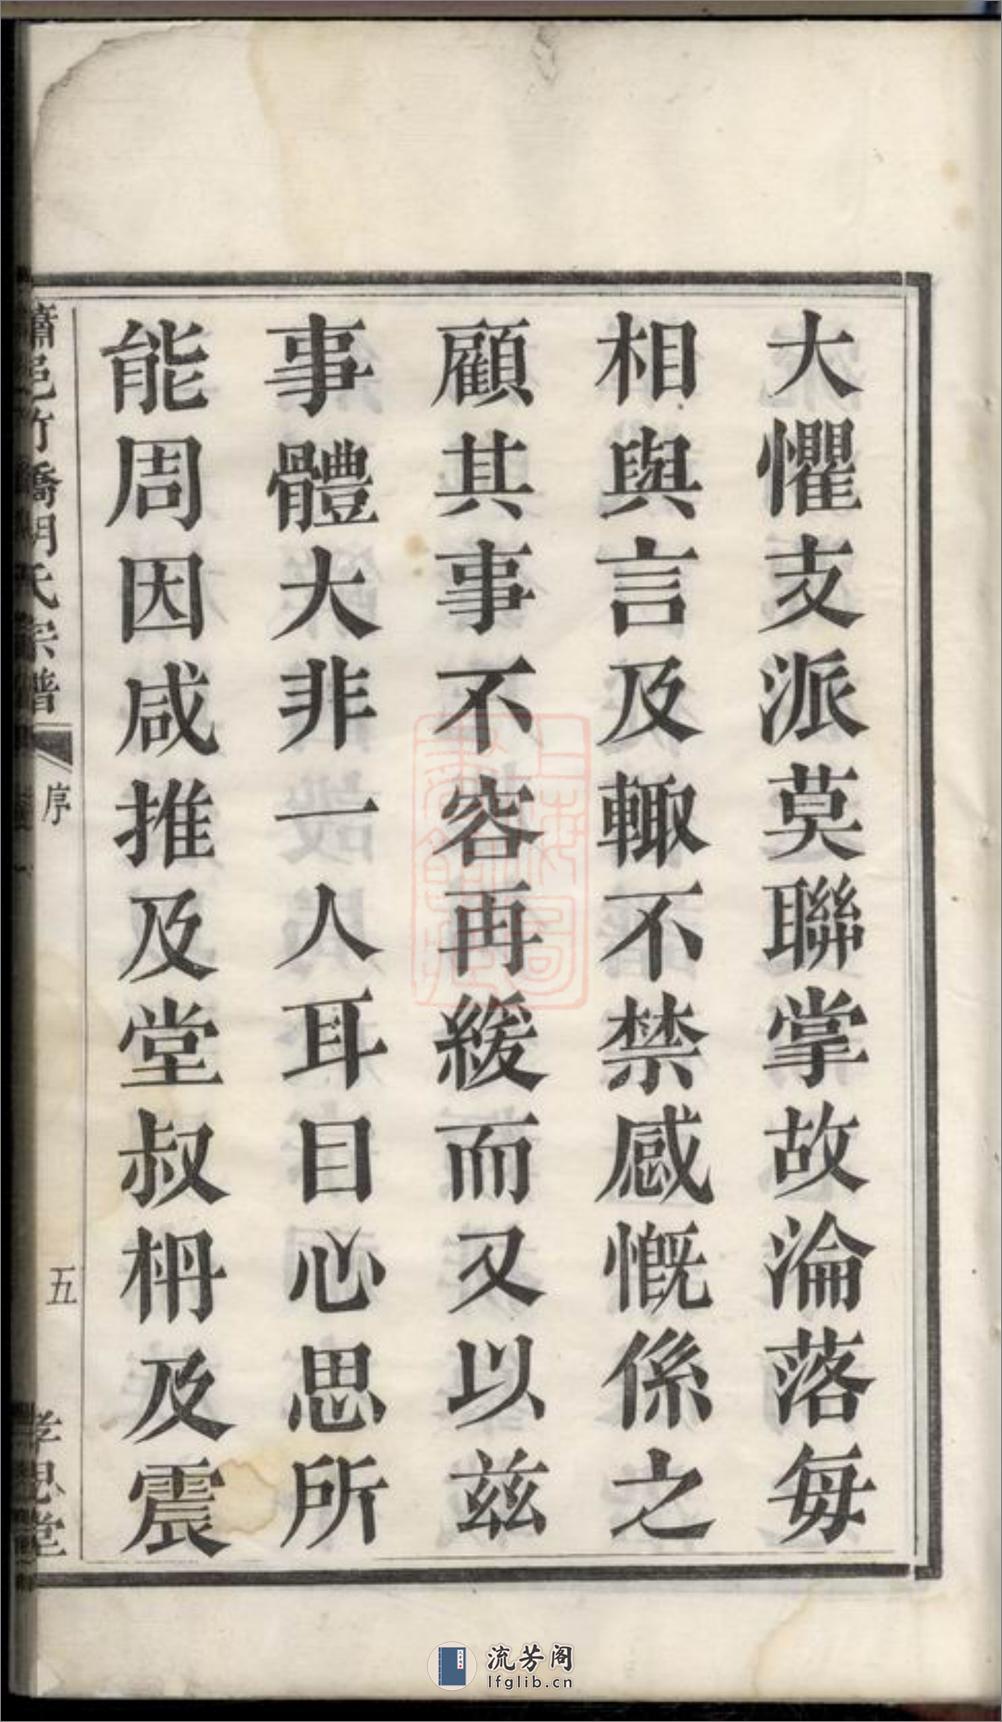 大懼支派莫聯掌故淪落每
相與言及輙不禁感慨係之
顧其事不容再緩而又以茲
事體大非一人耳目心思所
能周因咸推及堂叔枬及震
蕭邑竹橋胡氏宗譜
序
五
孝思堂
流芳阁
lfglib.cn